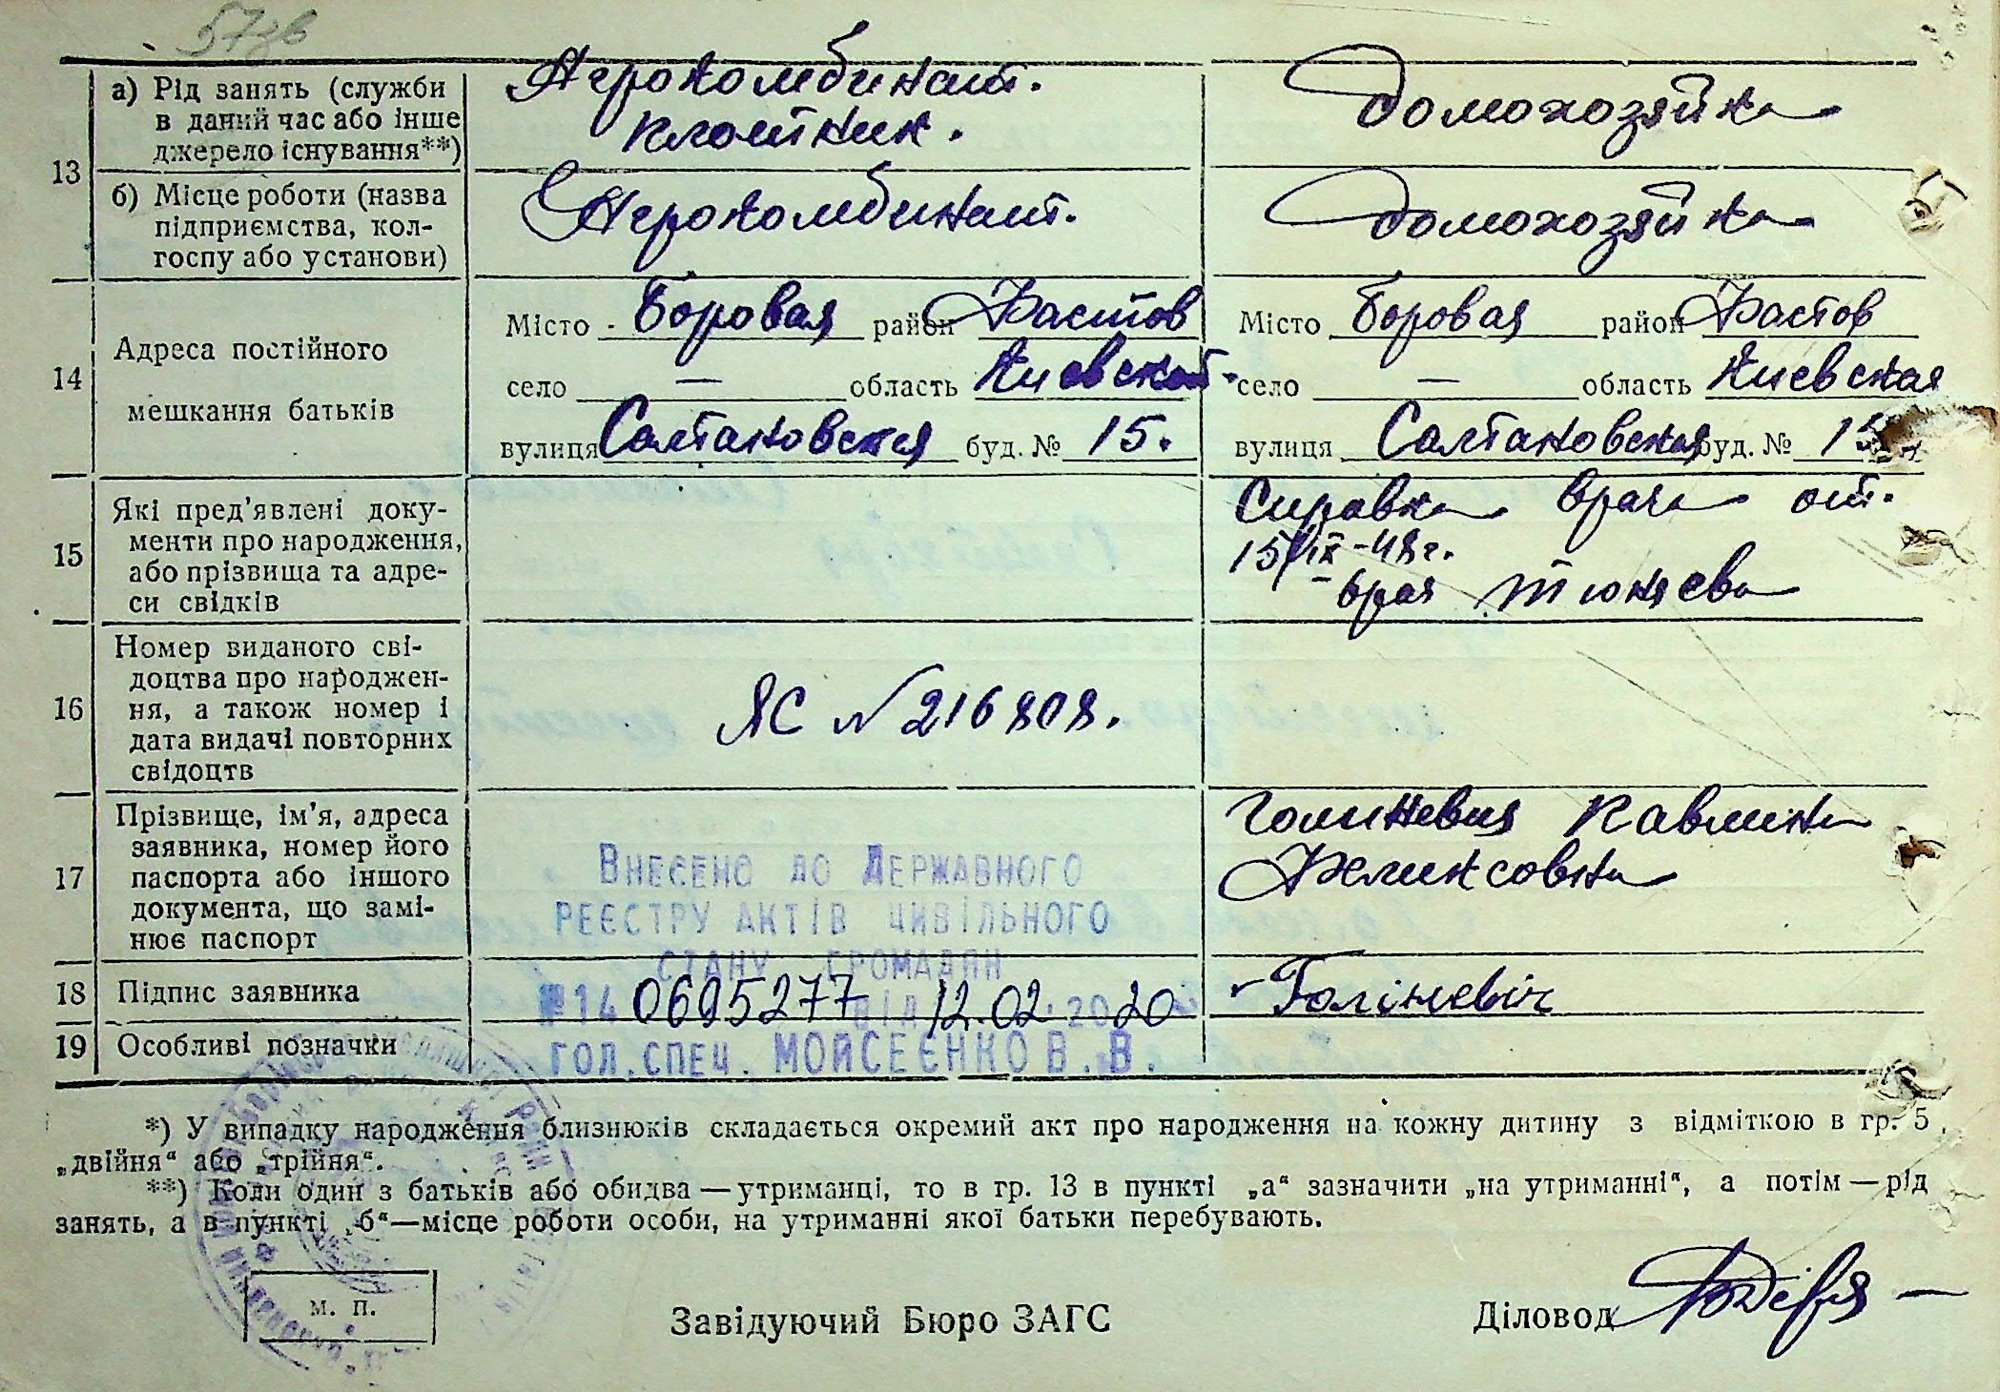 57зв
13
а) Рід занять (служби
в даний час або інше
джерело існування**)
Агрокомбинат.
плотник.
Домохозяйка
б) Місце роботи (назва
підприємства, кол-
госпу або установи)
Агрокомбинат.
Домохозяйка
14
Адреса постійного
мешкання батьків
Місто Боровая район Фастов
село — область Киевской
вулиця Салтановская буд. № 15.
Місто Боровая район Фастов
село — область Киевская
вулиця Салтановская буд. № 15
15
Які пред'явлені доку-
менти про народження,
або прізвища та адре-
си свідків
Справка врача от.
15/IX-48г.
врач Тюняева
16
Номер виданого сві-
доцтва про народжен-
ня, а також номер і
дата видачі повторних
свідоцтв
ЯС № 216808.
17
Прізвище, ім'я, адреса
заявника, номер його
паспорта або іншого
документа, що замі-
нює паспорт
Голиневич Павлина
Феликсовна
Внесено до Державного
реєстру актів цивільного
стану громадян
№14 0695277 від 12.02.2020
гол.спец. Мойсеєнко В.В.
18
Підпис заявника
Голіневіч
19
Особливі позначки
*) У випадку народження близнюків складається окремий акт про народження на кожну дитину з відміткою в гр. 5
„двійня“ або „трійня“.
**) Коли один з батьків або обидва — утриманці, то в гр. 13 в пункті „а“ зазначити „на утриманні“, а потім — рід
занять, а в пункті „б“ — місце роботи особи, на утриманні якої батьки перебувають.
м. п.
Завідуючий Бюро ЗАГС
Діловод